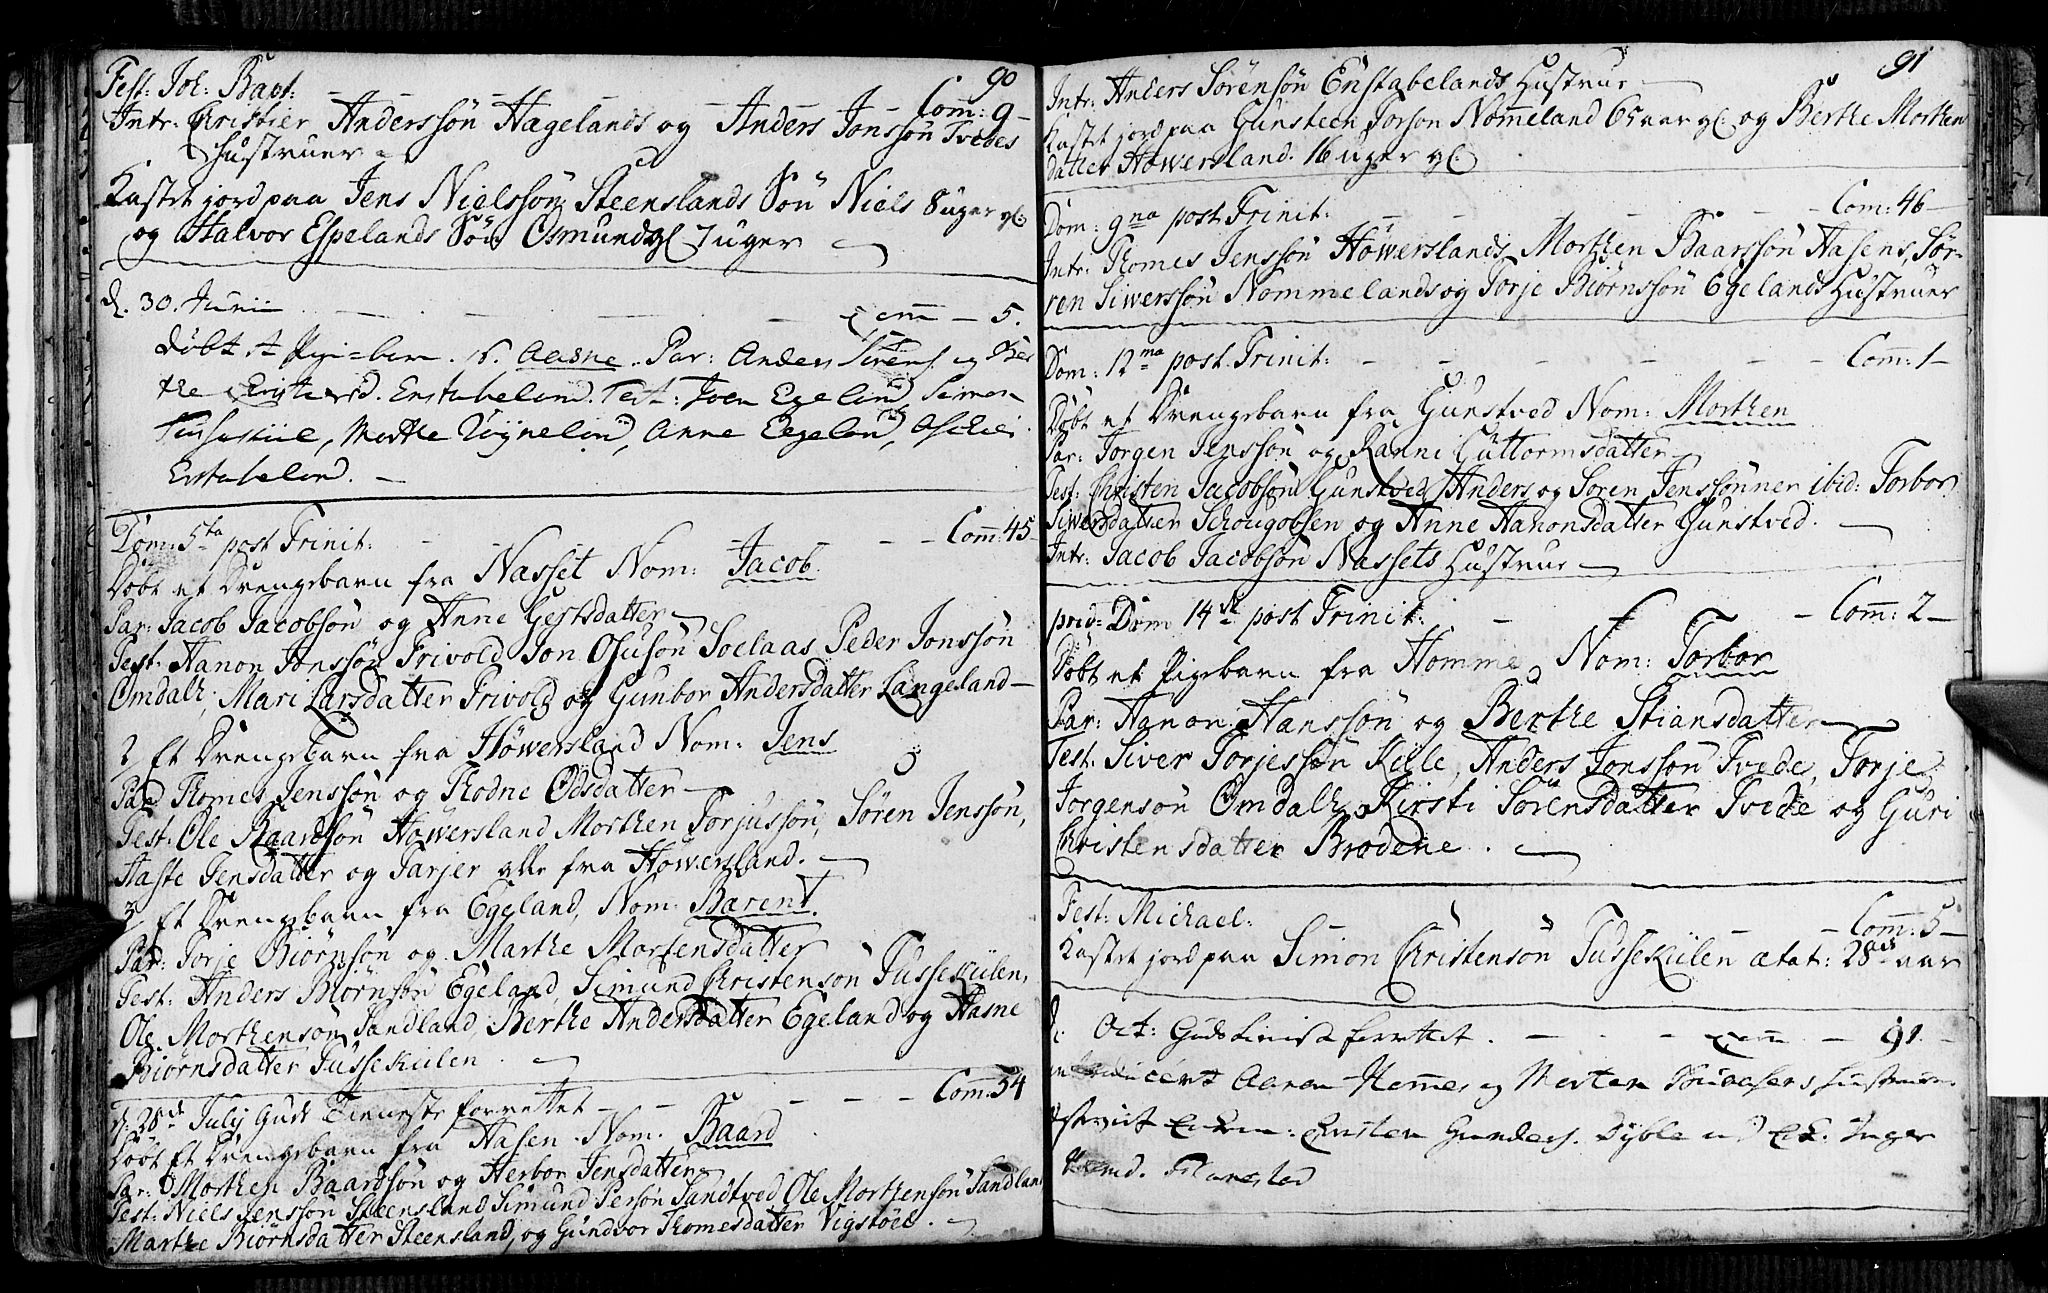 90
Fest: Joh: Bapt: - - - - Com: 9 -
Intr: Christier Anderssön Hagelands og Anders Jonssön Tvedes
Hustruer -
Kastet jord paa Jens Nielssön Steenslands Sön Niels 8 uger gl:
og Halvor Espelands Sön Osmund gl 7 uger
d. 30. Junii - - - Com - 5.
Döbt et Pige-barn. N. Aasne. Par: Anders Sörens. og Ber
the Enstabeland. Test: Joen Egeland, Simon
Tussekiil, Marthe Röyneland, Anne Egeland,
Enstabeland. -
Dom: 5ta post Trinit: - - - - Com: 45
Döbt et Drengebarn fra Nasset Nom: Jacob.
Par: Jacob Jacobsön og Anne Gestsdatter
Test: Hanon Jonssön Frivold, Jon Osusön Soelaas Peder Jonssön
Omdalh, Mari Larsdatter Frivold og Gunbor Andersdatter Langeland -
2 Et Drengebarn fra Höwersland Nom: Jens
Par Thomes Jenssön og Thodne Odsdatter -
Test: Ole Baardsön Höwersland Morthen Torjussön, Sören Jenssön,
Haste Jensdatter og Tarjer alle fra Höwersland.
3 Et Drengebarn fra Egeland, Nom: Barent.
Par: Torje Biörnsön og Marthe Mortensdatter
Test: Anders Biörnsön Egeland, Simund Christensön Tussekiilen,
Ole Morthensön Sandland, Berthe Andersdatter Egeland og Aasne
Biörnsdatter Tussekiilen.
d: 28de July Guds Tieneste forrettet - - - - Com: 54
Döbt Et Drengebarn fra Hasen. Nom. Baard
Par: Morthen Baardsön og Herbor Jensdatter
Test: Niels Jenssön Steensland Simund Persön Sandtved Ole Morthensön Sandland
Marthe Biörnsdatter Steensland, og Gundvor Thomesdatter Vigstöel.
91
Intr: Anders Sörensön Enstabelands Hustrue
Kastet jord paa Gunsteen Torson Nomeland 65 aar gl: og Berthe Morthen
datter Höwersland. 16 uger gl:
Dom: 9na post Trinit: - - - Com: 46 -
Intr: Thomes Jenssön Höwerslands, Morthen Baarssön Hasens, Sör-
ren Siwerssön Nommelands og Torje Biörnssön Egelands Hustruer
Dom: 12ma post Trinit: - - - - Com: 1 -
Döbt et Drengebarn fra Gunstved Nom: Morthen
Par: Jorgen Jenssön og Ranni Guttormsdatter
Test: Christen Jacobsön Gunstved Anders og Soren Jenssönner ibid: Torbor
Siwersdatter Schougobsen og Anne Hanonsdatter Gunstved.
Intr: Jacob Jacobsön Nassets Hustrue
prid: Dom 14de post Trinit: - - Com: 2 -
Döbt et Pigebarn fra Homme, Nom: Torbor
Par: Hanon Hanssön og Berthe Stiansdatter
Test: Siver Torjessön Kille, Anders Jonssön Tvede, Torje
Jorgensön Omdalh, Kirsti Sörensdatter Tvede og Guri
Christensdatter Brodene.
Fest: Michael: - - Com: 5 -
Kastet jord paa Simon Christensön Tussekiilen ætat: 28de aar
d: Oct: Guds tieniste forrettet. - - - Com - 91.
Introducert Aanen Homes, og Morten hustruer.
Christen Gunders. Dyble Inger